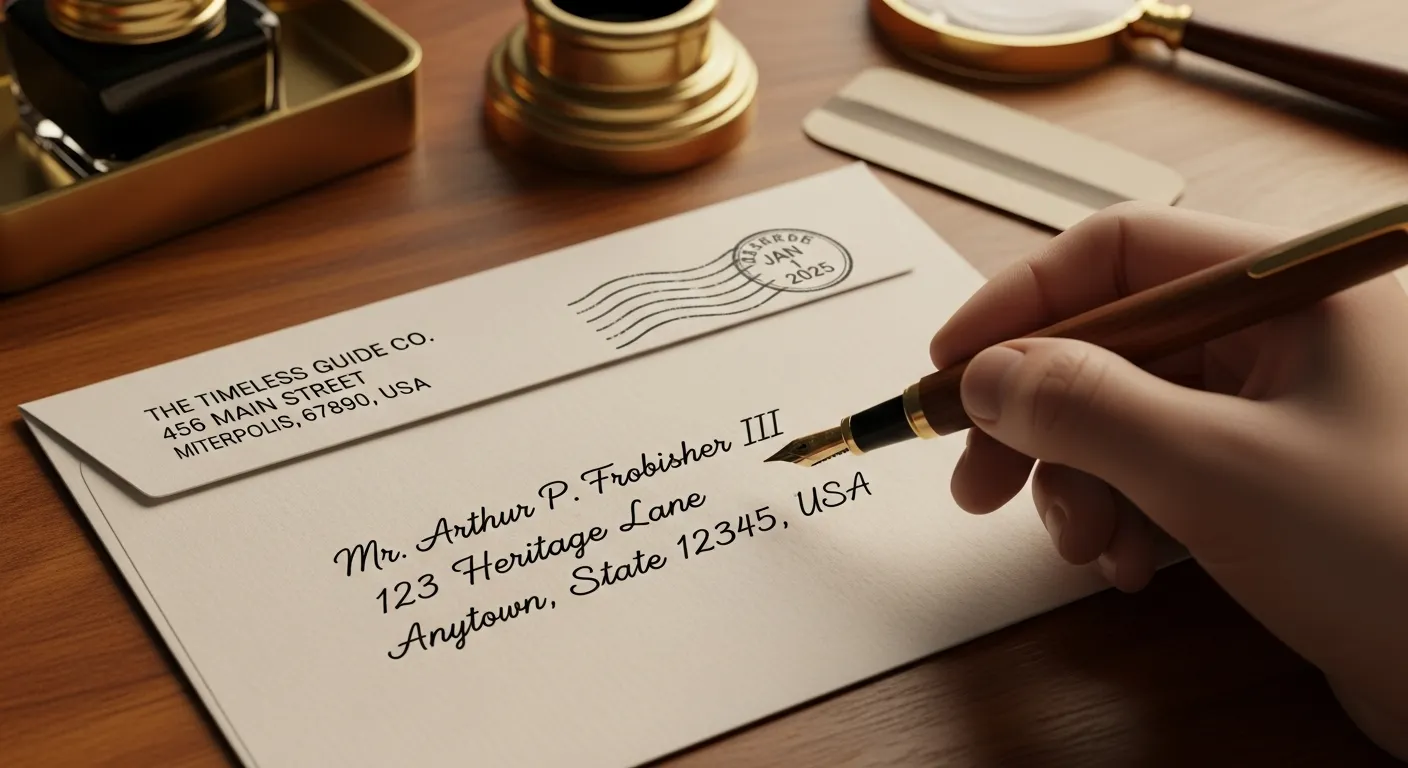 THE TIMELESS GUIDE CO.
456 MAIN STREET
MITERPOLIS, 67890, USA
JAN
1
2025
Mr. Arthur P. Frobisher III
123 Heritage Lane
Anytown, State 12345, USA